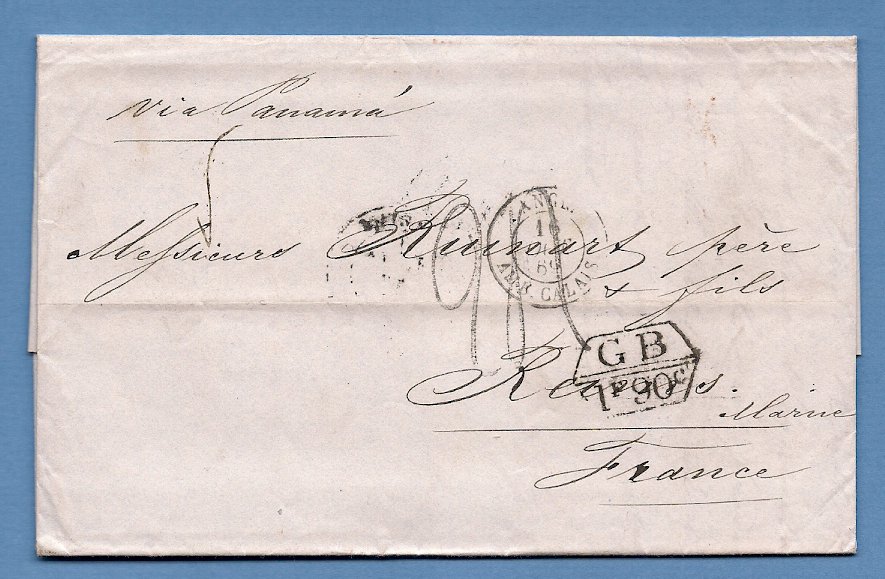 via Panamá
Messieurs Ruinart père
& fils
Reims.
Marne
France
AMB. CALAIS
GB
1F90c